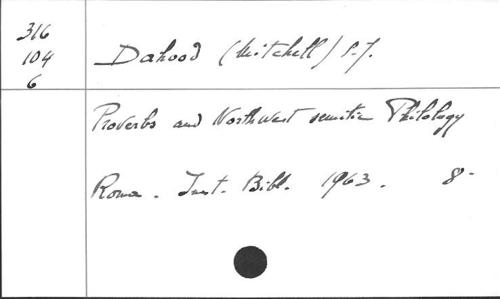 316
104
6
Dahood (Mitchell) s.j.
Proverbs and Northwest semitic Philology
Roma. Inst. Bibl. 1963. 8-